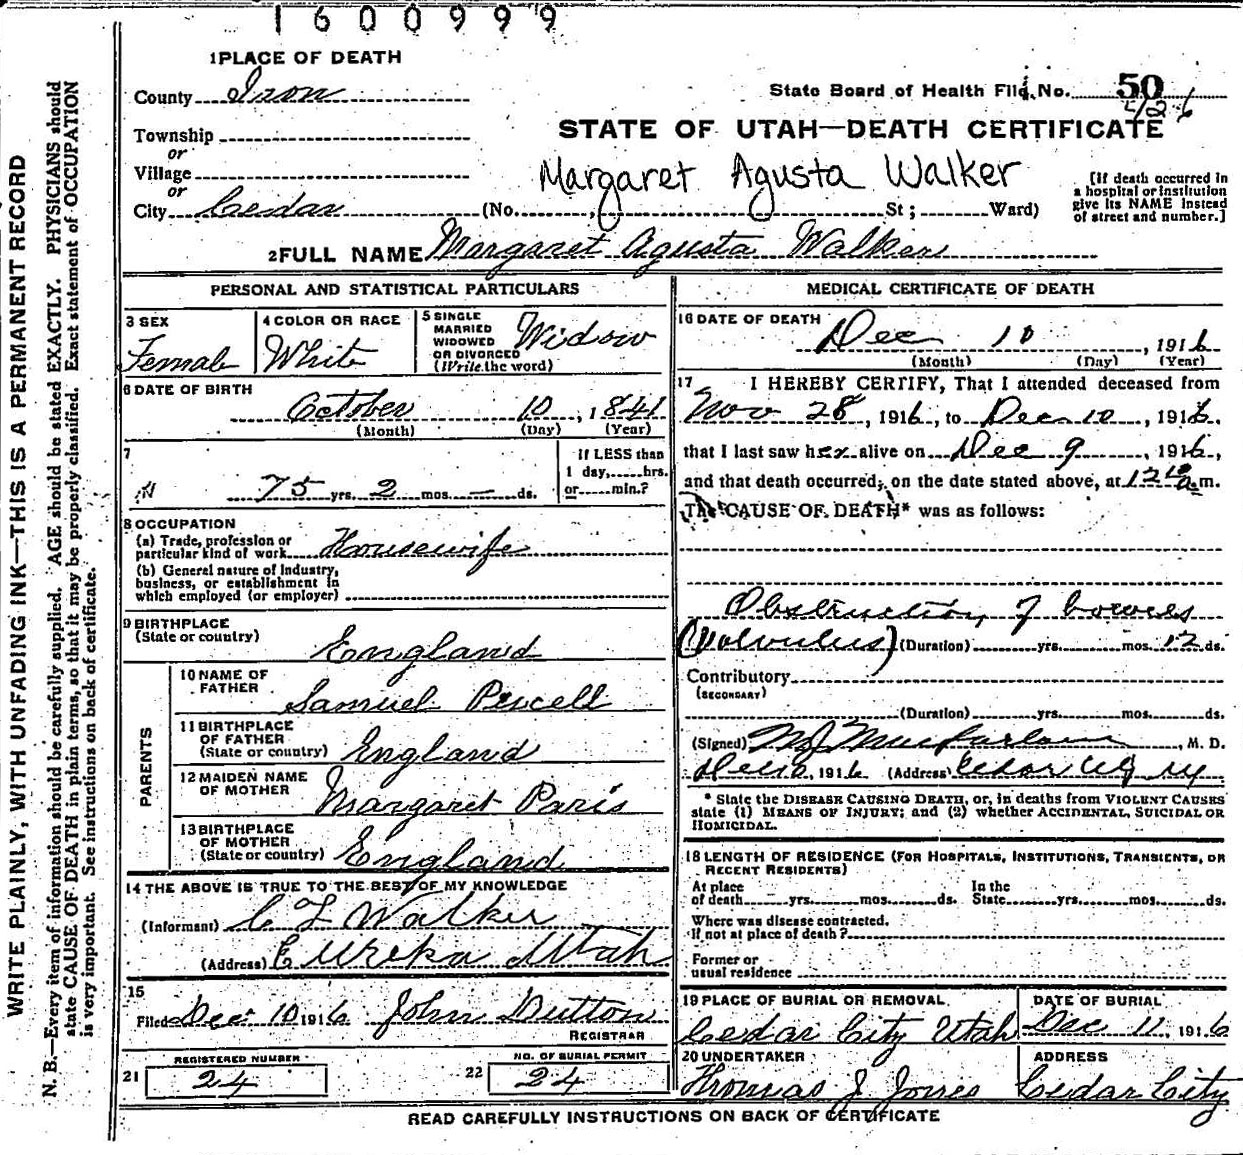 1600999
1 PLACE OF DEATH
County Iron
State Board of Health File No. 50
Township
or
STATE OF UTAH—DEATH CERTIFICATE
Village
or
Margaret Agusta Walker
City Cedar (No. St; Ward)
[If death occurred in a hospital or institution give its NAME instead of street and number.]
2 FULL NAME Margaret Agusta Walker
PERSONAL AND STATISTICAL PARTICULARS
3 SEX
Female
4 COLOR OR RACE
White
5 SINGLE
MARRIED
WIDOWED
OR DIVORCED
(Write the word)
Widow
6 DATE OF BIRTH
October 10, 1841
(Month) (Day) (Year)
7
75 yrs. 2 mos. — ds.
If LESS than
1 day, hrs.
or min.?
8 OCCUPATION
(a) Trade, profession or
particular kind of work Housewife
(b) General nature of Industry,
business, or establishment in
which employed (or employer)
9 BIRTHPLACE
(State or country)
England
PARENTS
10 NAME OF
FATHER
Samuel
11 BIRTHPLACE
OF FATHER
(State or country) England
12 MAIDEN NAME
OF MOTHER Margaret Paris
13 BIRTHPLACE
OF MOTHER
(State or country) England
14 THE ABOVE IS TRUE TO THE BEST OF MY KNOWLEDGE
(Informant) C F Walker
(Address) Eureka Utah
15
Filed Dec 10 1916 John Dutton
REGISTRAR
REGISTERED NUMBER
21 24
NO. OF BURIAL PERMIT
22 24
MEDICAL CERTIFICATE OF DEATH
16 DATE OF DEATH
Dec 10, 1916
(Month) (Day) (Year)
17 I HEREBY CERTIFY, That I attended deceased from
Nov 28, 1916, to Dec 10, 1916.
that I last saw her alive on Dec 9, 1916,
and that death occurred, on the date stated above, at 12 10 a.m.
The CAUSE OF DEATH* was as follows:
Obstruction of bowels
(Volvulus) (Duration) yrs. mos. 12 ds.
Contributory
(SECONDARY)
(Duration) yrs. mos. ds.
(Signed) M J Macfarlane, M. D.
Dec 10, 1916 (Address) Cedar City
* State the DISEASE CAUSING DEATH, or, in deaths from VIOLENT CAUSES
state (1) MEANS OF INJURY; and (2) whether ACCIDENTAL, SUICIDAL OR
HOMICIDAL.
18 LENGTH OF RESIDENCE (FOR HOSPITALS, INSTITUTIONS, TRANSIENTS, OR
RECENT RESIDENTS)
At place
of death yrs. mos. ds.
In the
State yrs. mos. ds.
Where was disease contracted.
If not at place of death?
Former or
usual residence
19 PLACE OF BURIAL OR REMOVAL
Cedar City Utah
DATE OF BURIAL
Dec 11, 1916
20 UNDERTAKER
Thomas J Jones
ADDRESS
Cedar City
READ CAREFULLY INSTRUCTIONS ON BACK OF CERTIFICATE
WRITE PLAINLY, WITH UNFADING INK—THIS IS A PERMANENT RECORD
N. B.—Every item of information should be carefully supplied. AGE should be stated EXACTLY. PHYSICIANS should
state CAUSE OF DEATH in plain terms, so that it may be properly classified. Exact statement of OCCUPATION
is very important. See instructions on back of certificate.